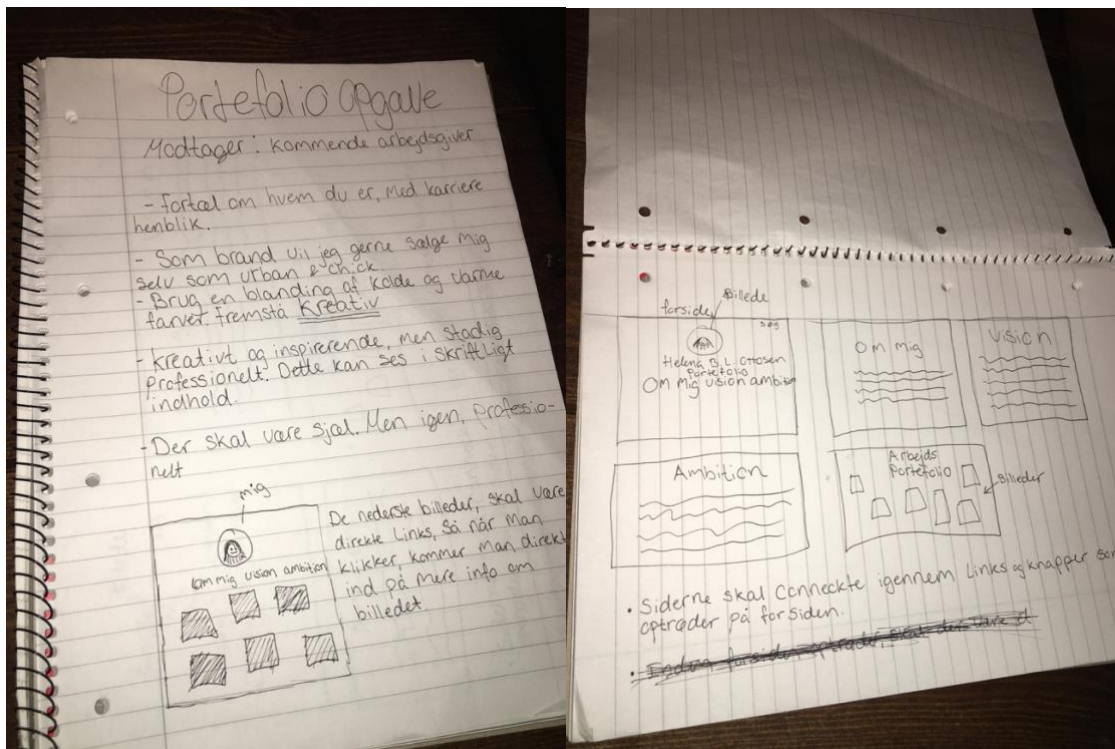 Portefolio opgave
Modtager: kommende arbejdsgiver
- fortæl om hvem du er, med karriere
henblik.
- Som brand vil jeg gerne sælge mig
selv som urban & chick
- Brug en blanding af kolde og varme
farver. fremstå Kreativ
- kreativt og inspirerende, men stadig
professionelt. Dette kan ses i skriftligt
indhold.
- Der skal være sjæl. Men igen, professio-
nelt
mig
om mig vision ambition
De nederste billeder, skal være
direkte links, så når man
klikker, kommer man direkt
ind på mere info om
billedet.
forside
Billede
søg
Helena B.L. Ottosen
Portefolio
Om mig vision ambition
Om mig
Vision
Ambition
Arbejds
Portefolio
Billeder
• Siderne skal Conneckte igennem Links og knapper som
optræder på forsiden.